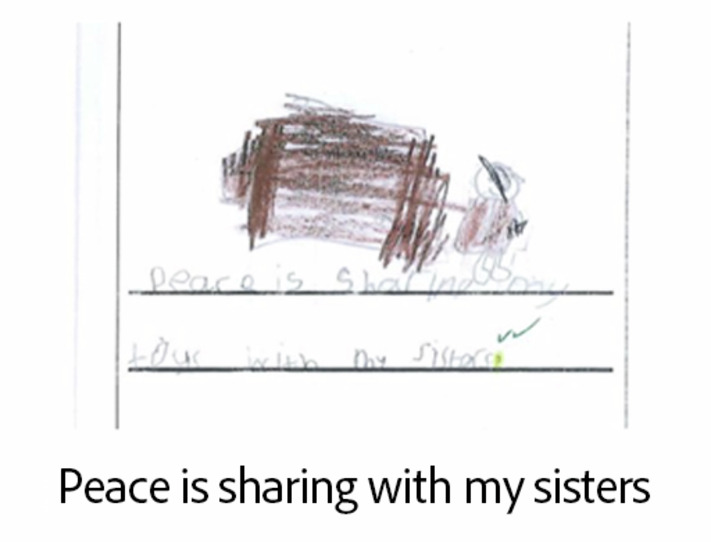 Peace is sharing my
toys with my sisters.
Peace is sharing with my sisters